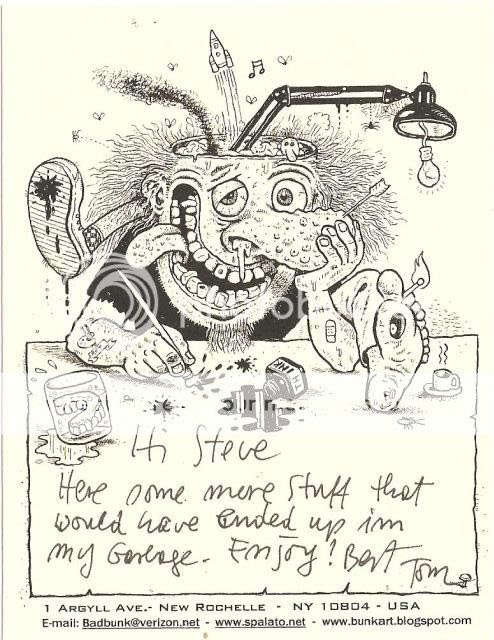 INK
Hi Steve
Here some more stuff that
would have ended up im
my Garbage. Enjoy! Best Tom
1 ARGYLL AVE.- NEW ROCHELLE - NY 10804 - USA
E-mail: Badbunk@verizon.net - www.spalato.net - www.bunkart.blogspot.com